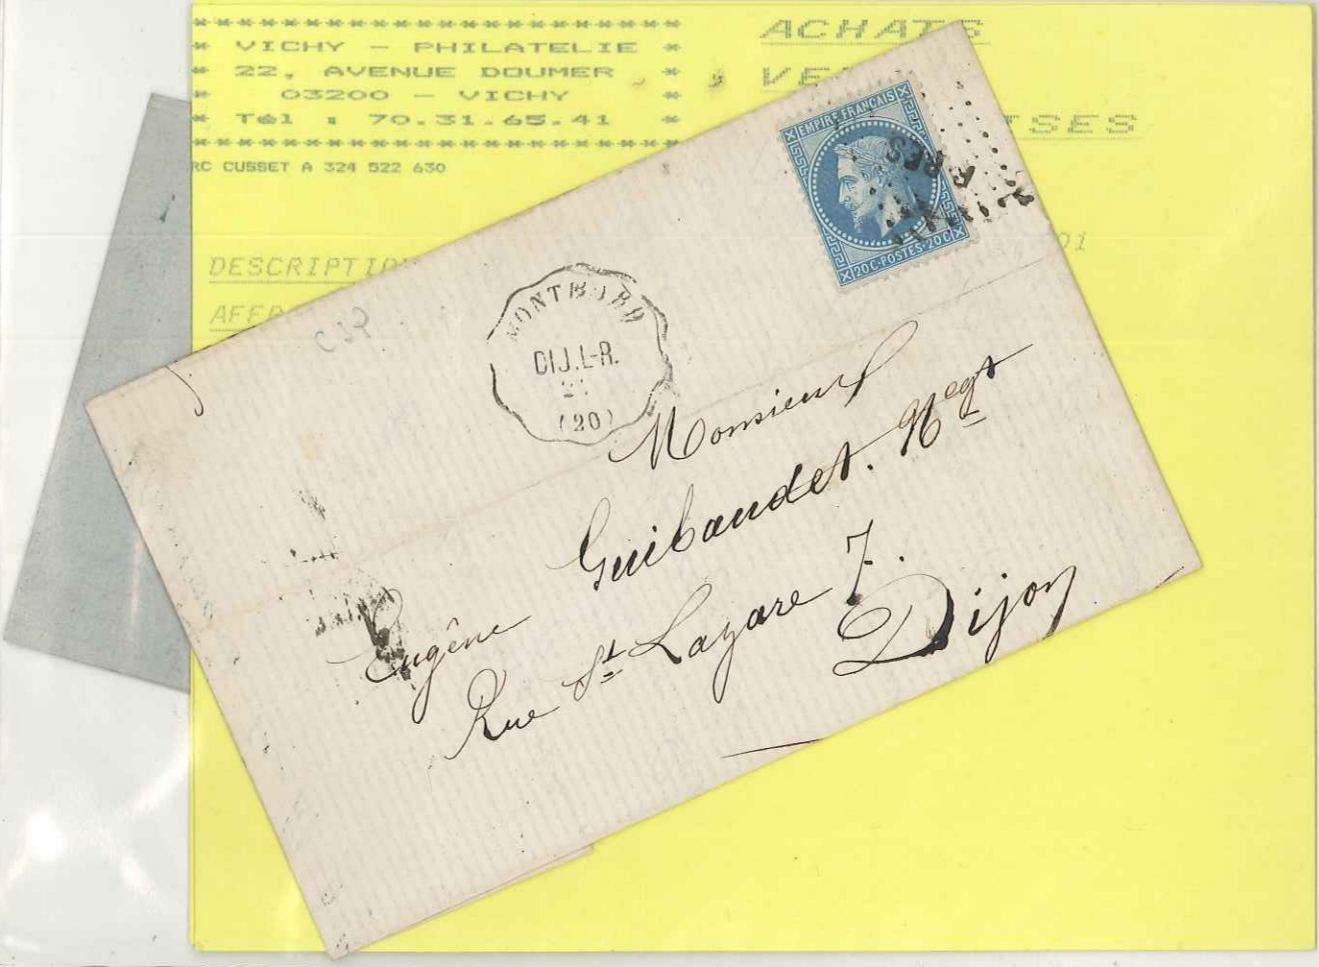 * * * * * * * * * * * * * * * * * * * * * * *
* VICHY - PHILATELIE *
* 22, AVENUE DOUMER *
* 03200 - VICHY *
* Tél : 70.31.65.41 *
* * * * * * * * * * * * * * * * * * * * * * *
RC CUSSET A 324 522 630
ACHATS
DESCRIPTIO
EMPIRE FRANÇAIS
20 C-POSTES-20 C
MONTBARD
DIJ.L-R.
(20)
Monsieur
Guibaudet. Negt
Eugène
Rue St Lazare 7.
Dijon